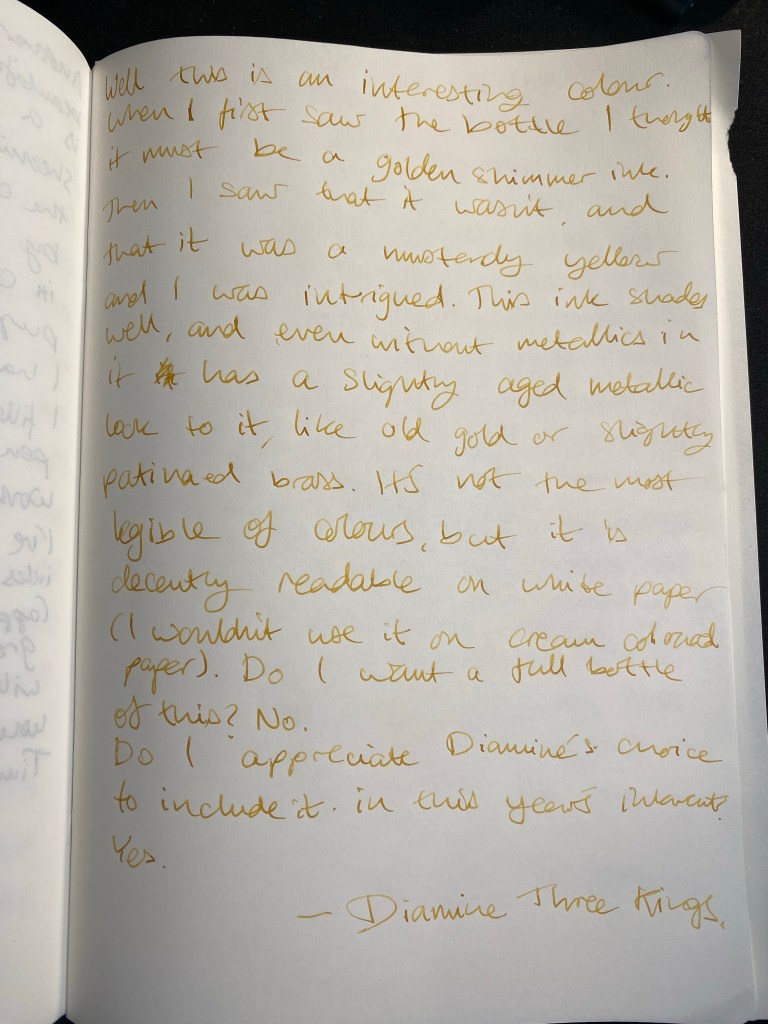 Well this is an interesting colour.
When I first saw the bottle I thought
it must be a golden shimmer ink.
Then I saw that it wasn't, and
that it was a mustardy yellow
and I was intrigued. This ink shades
well, and even without metallics in
it has a slightly aged metallic
look to it, like old gold or slightly
patinaed brass. It's not the most
legible of colours, but it is
decently readable on white paper
(I wouldn't use it on cream coloured
paper). Do I want a full bottle
of this? No.
Do I appreciate Diamine's choice
to include it in this year's inkvent?
Yes.
— Diamine Three Kings.